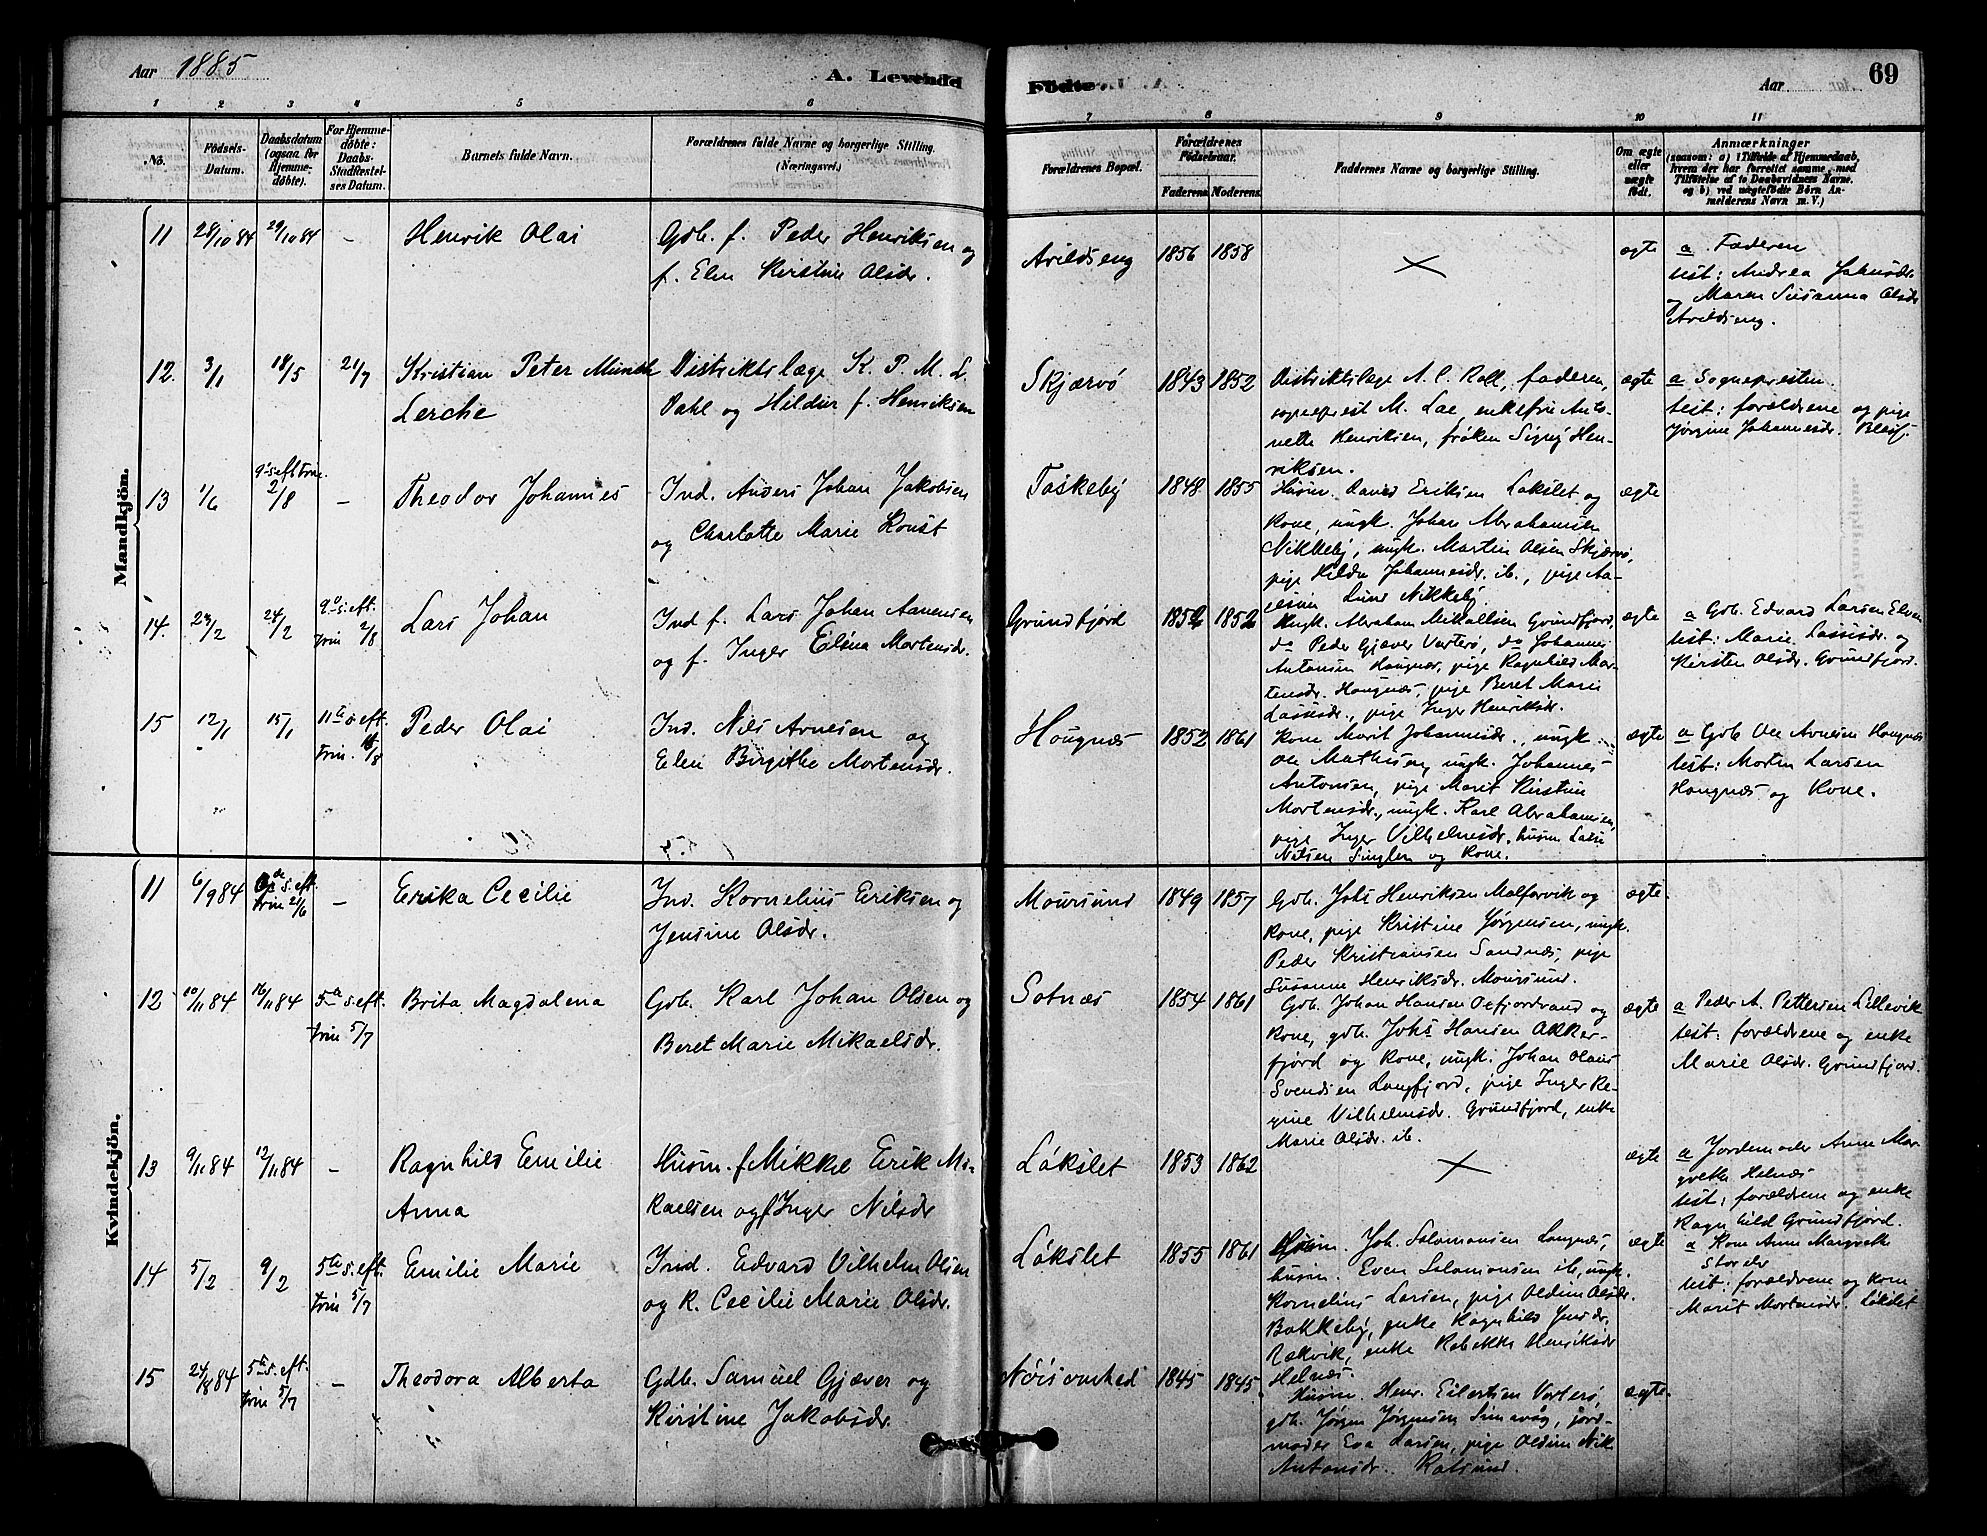 Aar 1885
A. Levende
Fødte.
Aar
69
1 2 3 4 5 6 7 8 9 10 11
No.
Fødsels-
Datum.
Daabsdatum
(ogsaa for
Hjemme-
døbte).
For Hjemme-
døbte:
Daabs-
Stadfæstel-
ses Datum.
Barnets fulde Navn.
Forældrenes fulde Navne og borgerlige Stilling.
(Næringsvei.)
Forældrenes Bopæl.
Forældrenes
Fødselsaar.
Faderens
Moderens
Faddernes Navne og borgerlige Stilling.
Om ægte
eller
uægte
født.
Anmærkninger
(saasom: a) i Tilfælde af Hjemmedaab,
hvem der har forrettet samme, med
Tilføielse af to Daabsvidners Navne.
og b) ved uægtefødte Børn An-
melderens Navn m. V.)
Mandkjön.
11 28/10 84 29/10 84 - Henrik Olai
Gdb. f. Peder Henriksen og
f. Elen Kirstine Olsdr.
Arildseng 1856 1858 ægte
a Faderen
test: Andrea Johnsdr.
og Maren Susanna Olsdr
Arildseng.
12. 3/1 18/5 21/7 Kristian Peter Munthe
Lerche
Distriktslæge K. P. M. L.
Dahl og Hildur f. Henriksen
Skjærvö 1843 1852
Distriktslæge A. C. Roll, faderen,
sogneprest M. Lae, enkefru Anto-
nette Henriksen, fröken Signy Hen-
riksen.
ægte
a Sognepresten.
test: forældrene og pige
Jörgine Johannesdr.
13 1/6 9de s. eft trin. 2/8 - Theodor Johannes
Ind. Anders Johan Jakobsen
og Charlotte Marie Konst
Taskeby 1848 1855
Husm. David Eriksen Lökslet og
Kone, ungk. Johan Abrahamsen
Nikkeby, ungk. Martin Olsen Skjærvö,
pige Hilda Johannesdr. ib., pige
Lund Nikkeby
ægte
14. 23/2 24/2 9de s. eft. trin 2/8 Lars Johan
Ind f. Lars Johan Aanensen
og f. Inger Elena Mortensdr.
Grundfjord 1852 1852
Ungk. Abraham Mikkalsen Grundfjord,
do Peder Gjæver Vorterö, do Johannes
Antonsen Hougnæs, pige Ragnhild Mor-
tensdr. Hougnæs, pige Beret Marie
Lassesdr., pige Inger Henriksdr.
ægte
a Gdb. Edvard Larsen Elven
test: Marie Lassesdr. og
Kirsten Olsdr. Grundfjord.
15 12/1 15/1 11te s. eft. trin. 16/8 Peder Olai
Ind. Nils Arnesen og
Elen Birgithe Mortensdr.
Hougnæs 1852 1861
Kone Marit Johannesdr., ungk.
Ole Mathisen, ungk. Johannes
Antonsen, pige Marit Kirstine
Mortensdr., ungk. Karl Abrahamsen,
pige Inger Vilhelmsdr. husm Lars
Nilsen Singlen og Kone.
ægte
a Gdb Ole Arnesen Hougnæs
test: Morten Larsen
Hougnæs og Kone.
Kvindekjön.
11 6/9 84 s. eft. trin 21/6 - Erika Cecilie
Ind. Kornelius Eriksen og
Jensine Olsdr.
Moursund 1849 1857
Gdb. Johs Henriksen Malfarvik og
Kone, pige Kristine Jörgensen, ungk.
Peder Kristiansen Sandnæs, pige
Susanne Henriksdr. Moursund.
ægte.
12 10/11 84 16/11 84 5te s. eft. trin 5/7 Brita Magdalena
Gdb. Karl Johan Olsen og
Beret Marie Mikaelsdr.
Sotnæs 1854 1861
Gdb. Johan Hansen Oxfjordvand og
Kone, gdb. Johs Hansen Okker-
fjord og Kone, ungk. Johan Olaus
Svendsen Langfjord, pige Inger Re-
gine Vilhelmsdr. Grundfjord, enke
Marie Olsdr. ib.
ægte
a Peder A. Pettersen Lillevik
test: forældrene og enke
Marie Olsdr. Grundfjord.
13 9/11 84 12/11 84 - Ragnhild Emilie
Anna
Husm. f Mikkel Erik Mi-
kaelsen og f Inger Nilsdr
Lökslet 1853 1862 ægte
a Jordemoder Anne Mar-
grethe Helnæs
test: forældrene og enke
Ragnhild Grundfjord.
14 5/2 9/2 5te s. eft. trin 5/7 Emilie Marie
Ind. Edvard Vilhelm Olsen
og K. Cecilie Marie Olsdr.
Lökslet 1855 1861
Husm. Joh. Salomonsen Longnæs,
husm. Even Salomonsen ib, ungk.
Kornelius Larsen, pige Oldine Olsdr.
Bakkeby, enke Ragnhild Jensdr.
Rækvik, enke Rebekka Henriksdr
Helnæs.
ægte
a Kone Anne Margrethe
Storelv
test: forældrene og kone
Marit Mortensdr. Lökslet
15 24/8 84 5te s. eft. trin 5/7 - Theodora Alberta
Gdb. Samuel Gjæver og
Kirstine Jakobsdr.
1845 1845
Husm. Henr. Eilertsen Vorterö,
gdb. Jörgen Jörgensen Simavåg, jord-
moder Eva Larsen, pige Oldine
Antonsdr. Rotsund.
ægte.